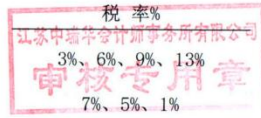 税 率%
江苏中瑞华会计师事务所有限公司
3%、6%、9%、13%
审核专用章
7%、5%、1%